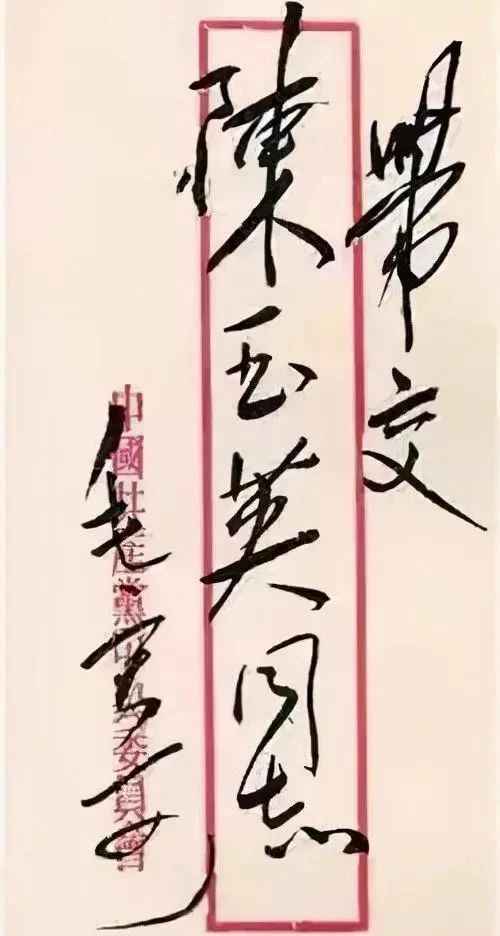 帶交
陳玉英同志
毛寄
中國共產黨中央委員會